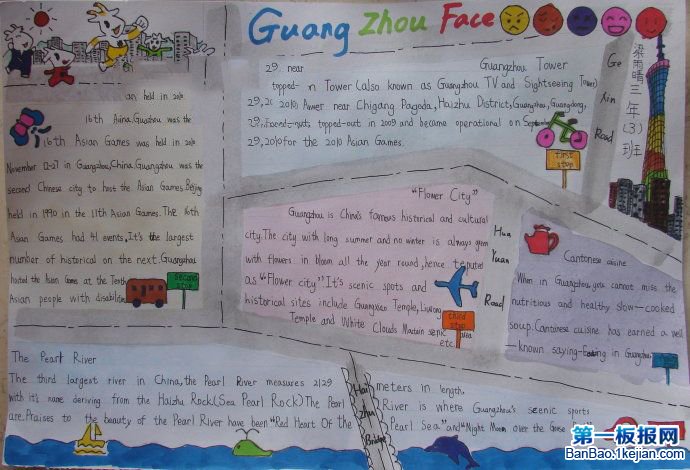 Guang Zhou Face
梁雨晴三年(3)班
an held in 2010
16th Asian Games was held in 2010
November 12-27 in Guangzhou, China. Guangzhou was the
second Chinese city to host the Asian Games. Beijing
held in 1990 in the 11th Asian Games. The 16th
Asian Games had 41 events, It's the largest
number of historical on the next. Guangzhou
hosted the Asian Games at the Tenth
Asian people with
second stop
29. near
Guangzhou Tower
topped-n Tower (also known as Guangzhou TV and Sightseeing Tower)
29, 20 2010 near Chigang Pagoda, Haizhu District, Guangzhou, Guangdong,
29. topped-out in 2009 and became operational on
29, 2010 for the 2010 Asian Games.
first stop
Ge
Xin
Road
"Flower City"
Guangzhou is China's famous historical and cultural
city. The city with long summer and no winter is always green
with flowers in bloom all the year round, hence
as "Flower city" It's scenic spots and
historical sites include Guangxiao Temple, Liurong
Temple and White Clouds
etc.
third stop
Hua
Yuan
Road
Cantonese
When in Guangzhou, you cannot miss the
nutritious and healthy slow-cooked
soup. Cantonese cuisine has earned a well
-known saying-Eating in Guangzhou
The Pearl River
The third largest river in China, the Pearl River measures 2129 meters in length.
with it's name deriving from the Haizhu Rock. (Sea Pearl Rock) The Pearl River is where Guangzhou's
are. Praises to the beauty of the Pearl River have been "Red Heart Of the Pearl Sea" and "Night Moon over the Goose
Hai
Zhu
Bridge
第一板报网
BanBao.1kejian.com